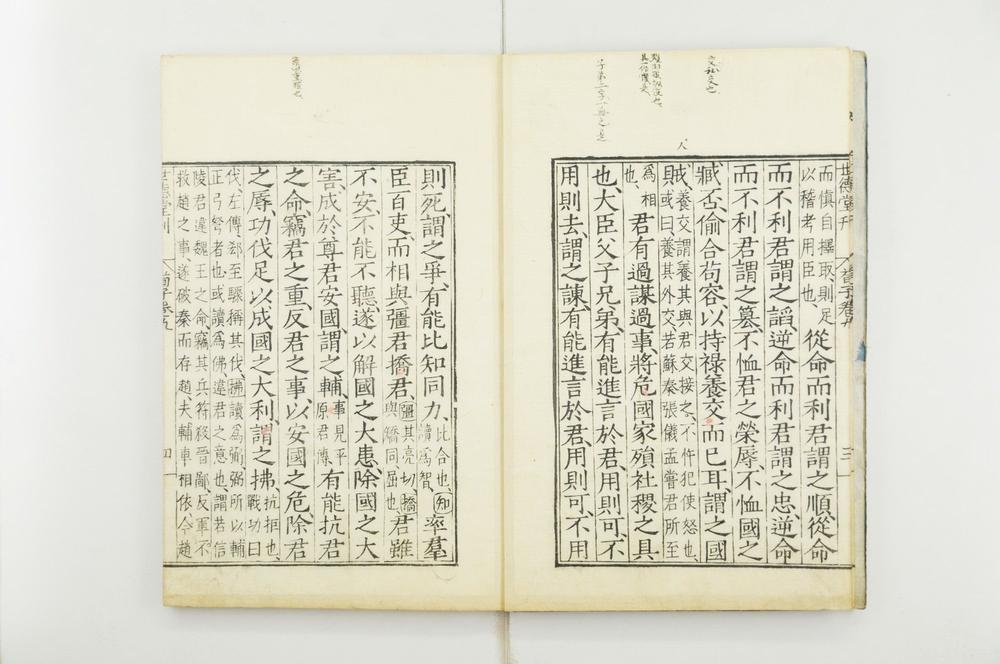 交私交也
世德堂刊 荀子卷五 三
而慎自擇取則足
以稽考用臣也、從命而利君謂之順、從命
而不利君謂之謟、逆命而利君謂之忠、逆命
而不利君謂之篡、不恤君之榮辱、不恤國之
臧否、偷合苟容、以持祿養交而已耳、謂之國
賊、養交謂養其與君交接之、不忤犯使怒也、
或曰養其外交若蘇秦張儀孟嘗君所至
爲相
也、君有過謀過事、將危國家殞社稷之具
也、大臣父子兄弟、有能進言於君、用則可、不
用則去、謂之諫、有能進言於君、用則可、不用
則死、謂之爭、有能比知同力、比合也、知
讀爲智、率羣
臣百吏、而相與彊君撟君、彊其亮切、撟
與矯同屈也、君雖
不安、不能不聽、遂以解國之大患、除國之大
害、成於尊君安國、謂之輔、事見平
原君傳、有能抗君
之命、竊君之重、反君之事、以安國之危、除君
之辱、功伐足以成國之大利、謂之拂、抗拒也、
戰功曰
伐、左傳、郤至驟稱其伐、拂讀爲弼、弼所以輔
正弓弩者也、或讀爲佛、違君之意也、謂若信
陵君違魏王之命、竊其兵符、殺晉鄙、反軍不
救趙之事、遂破秦而存趙、夫輔車相依、今趙
世德堂刊 荀子卷五 四